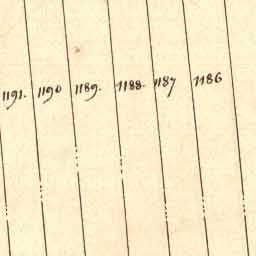 1191. 1190 1189. 1188. 1187 1186